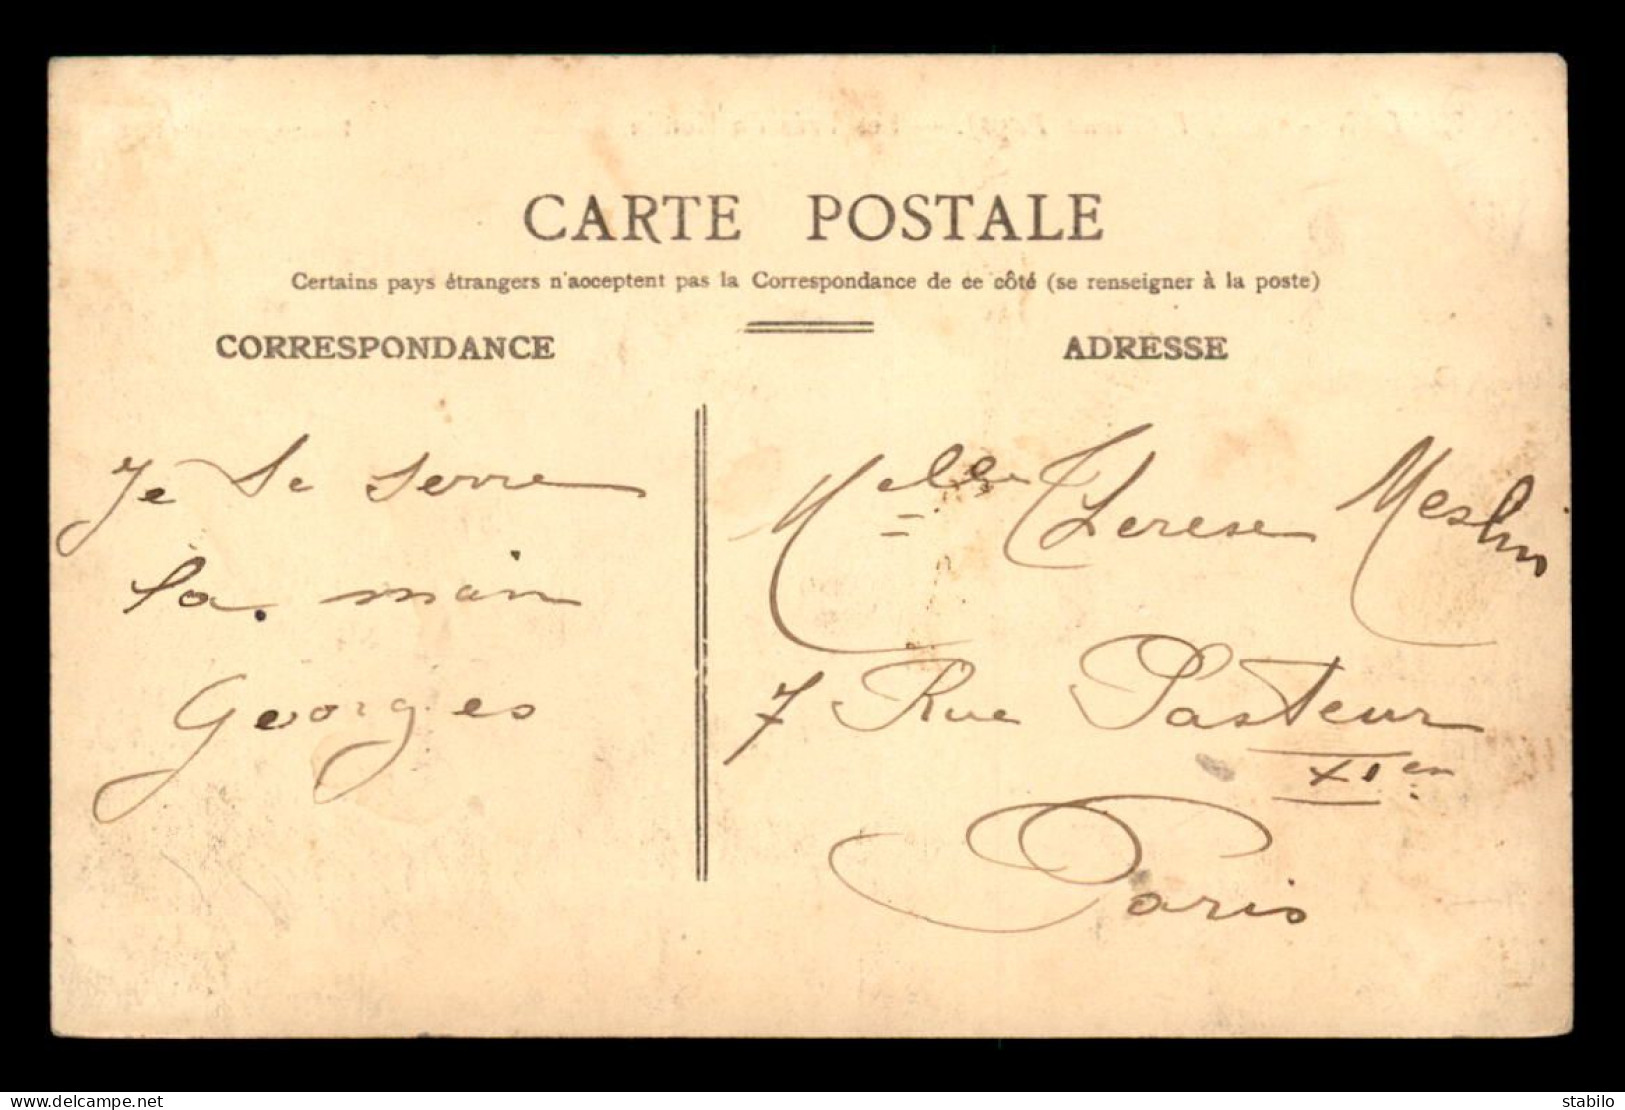 CARTE POSTALE
Certains pays étrangers n'acceptent pas la Correspondance de ce côté (se renseigner à la poste)
CORRESPONDANCE
Je te serre
la main
Georges
ADRESSE
Melle Therese Meslin
7 Rue Pasteur
XI em
Paris
www.delcampe.net
stabilo